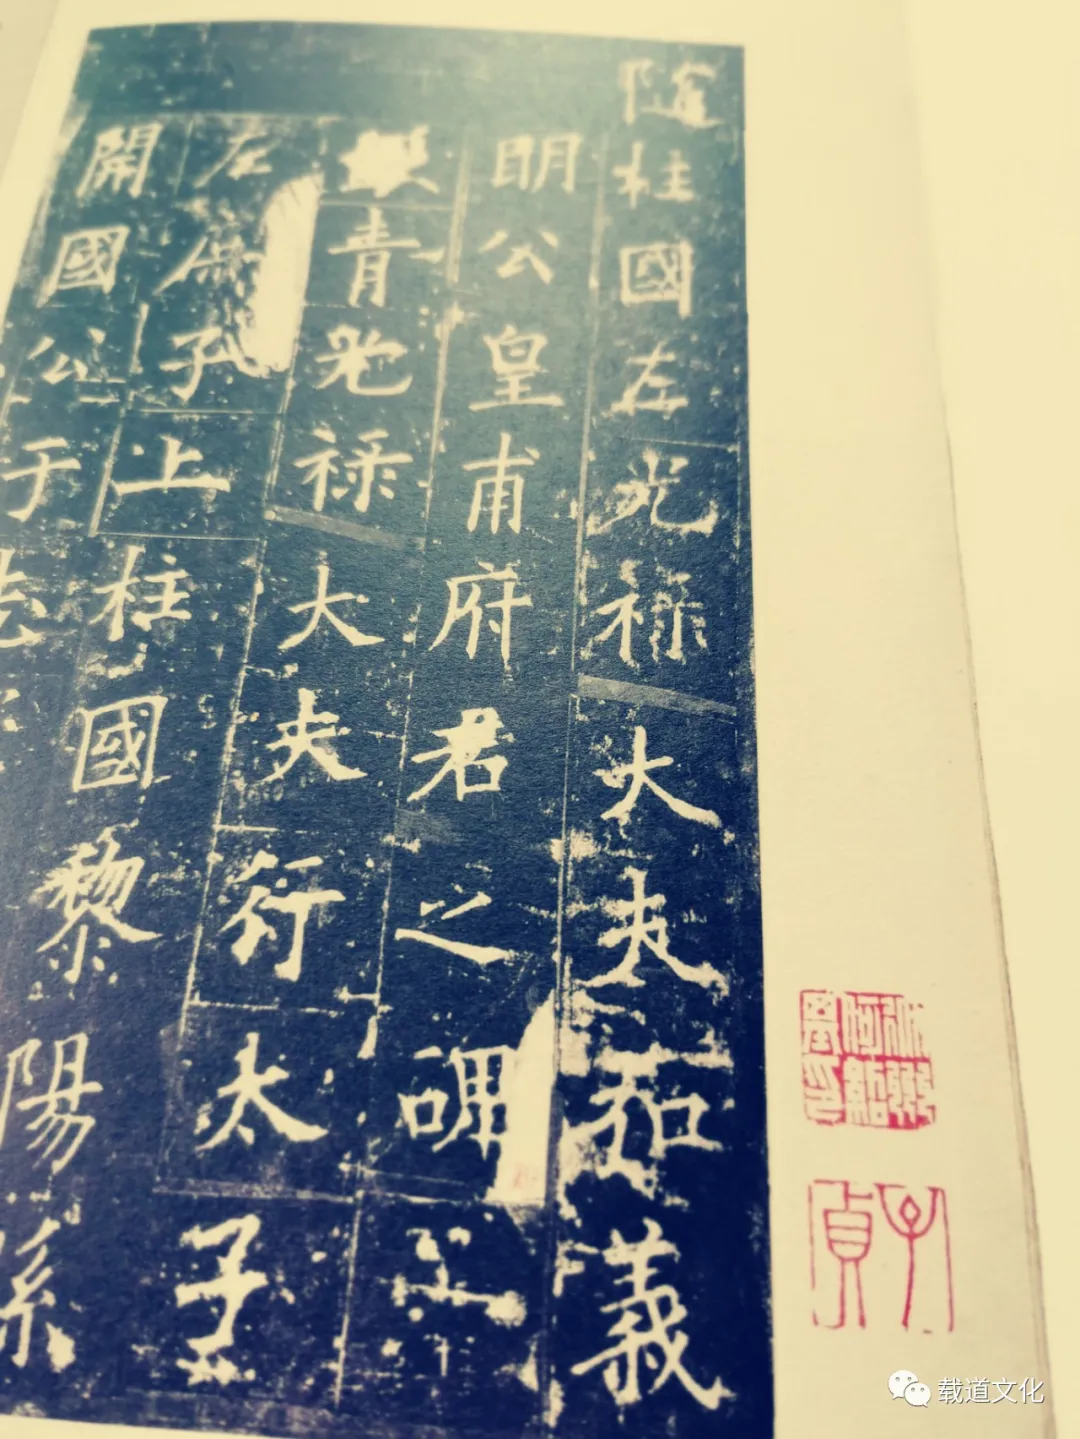 隨柱國左光禄大夫弘義
明公皇甫府君之碑
青光禄大夫行太子
左庶子上柱國黎陽縣
開國公于志
载道文化